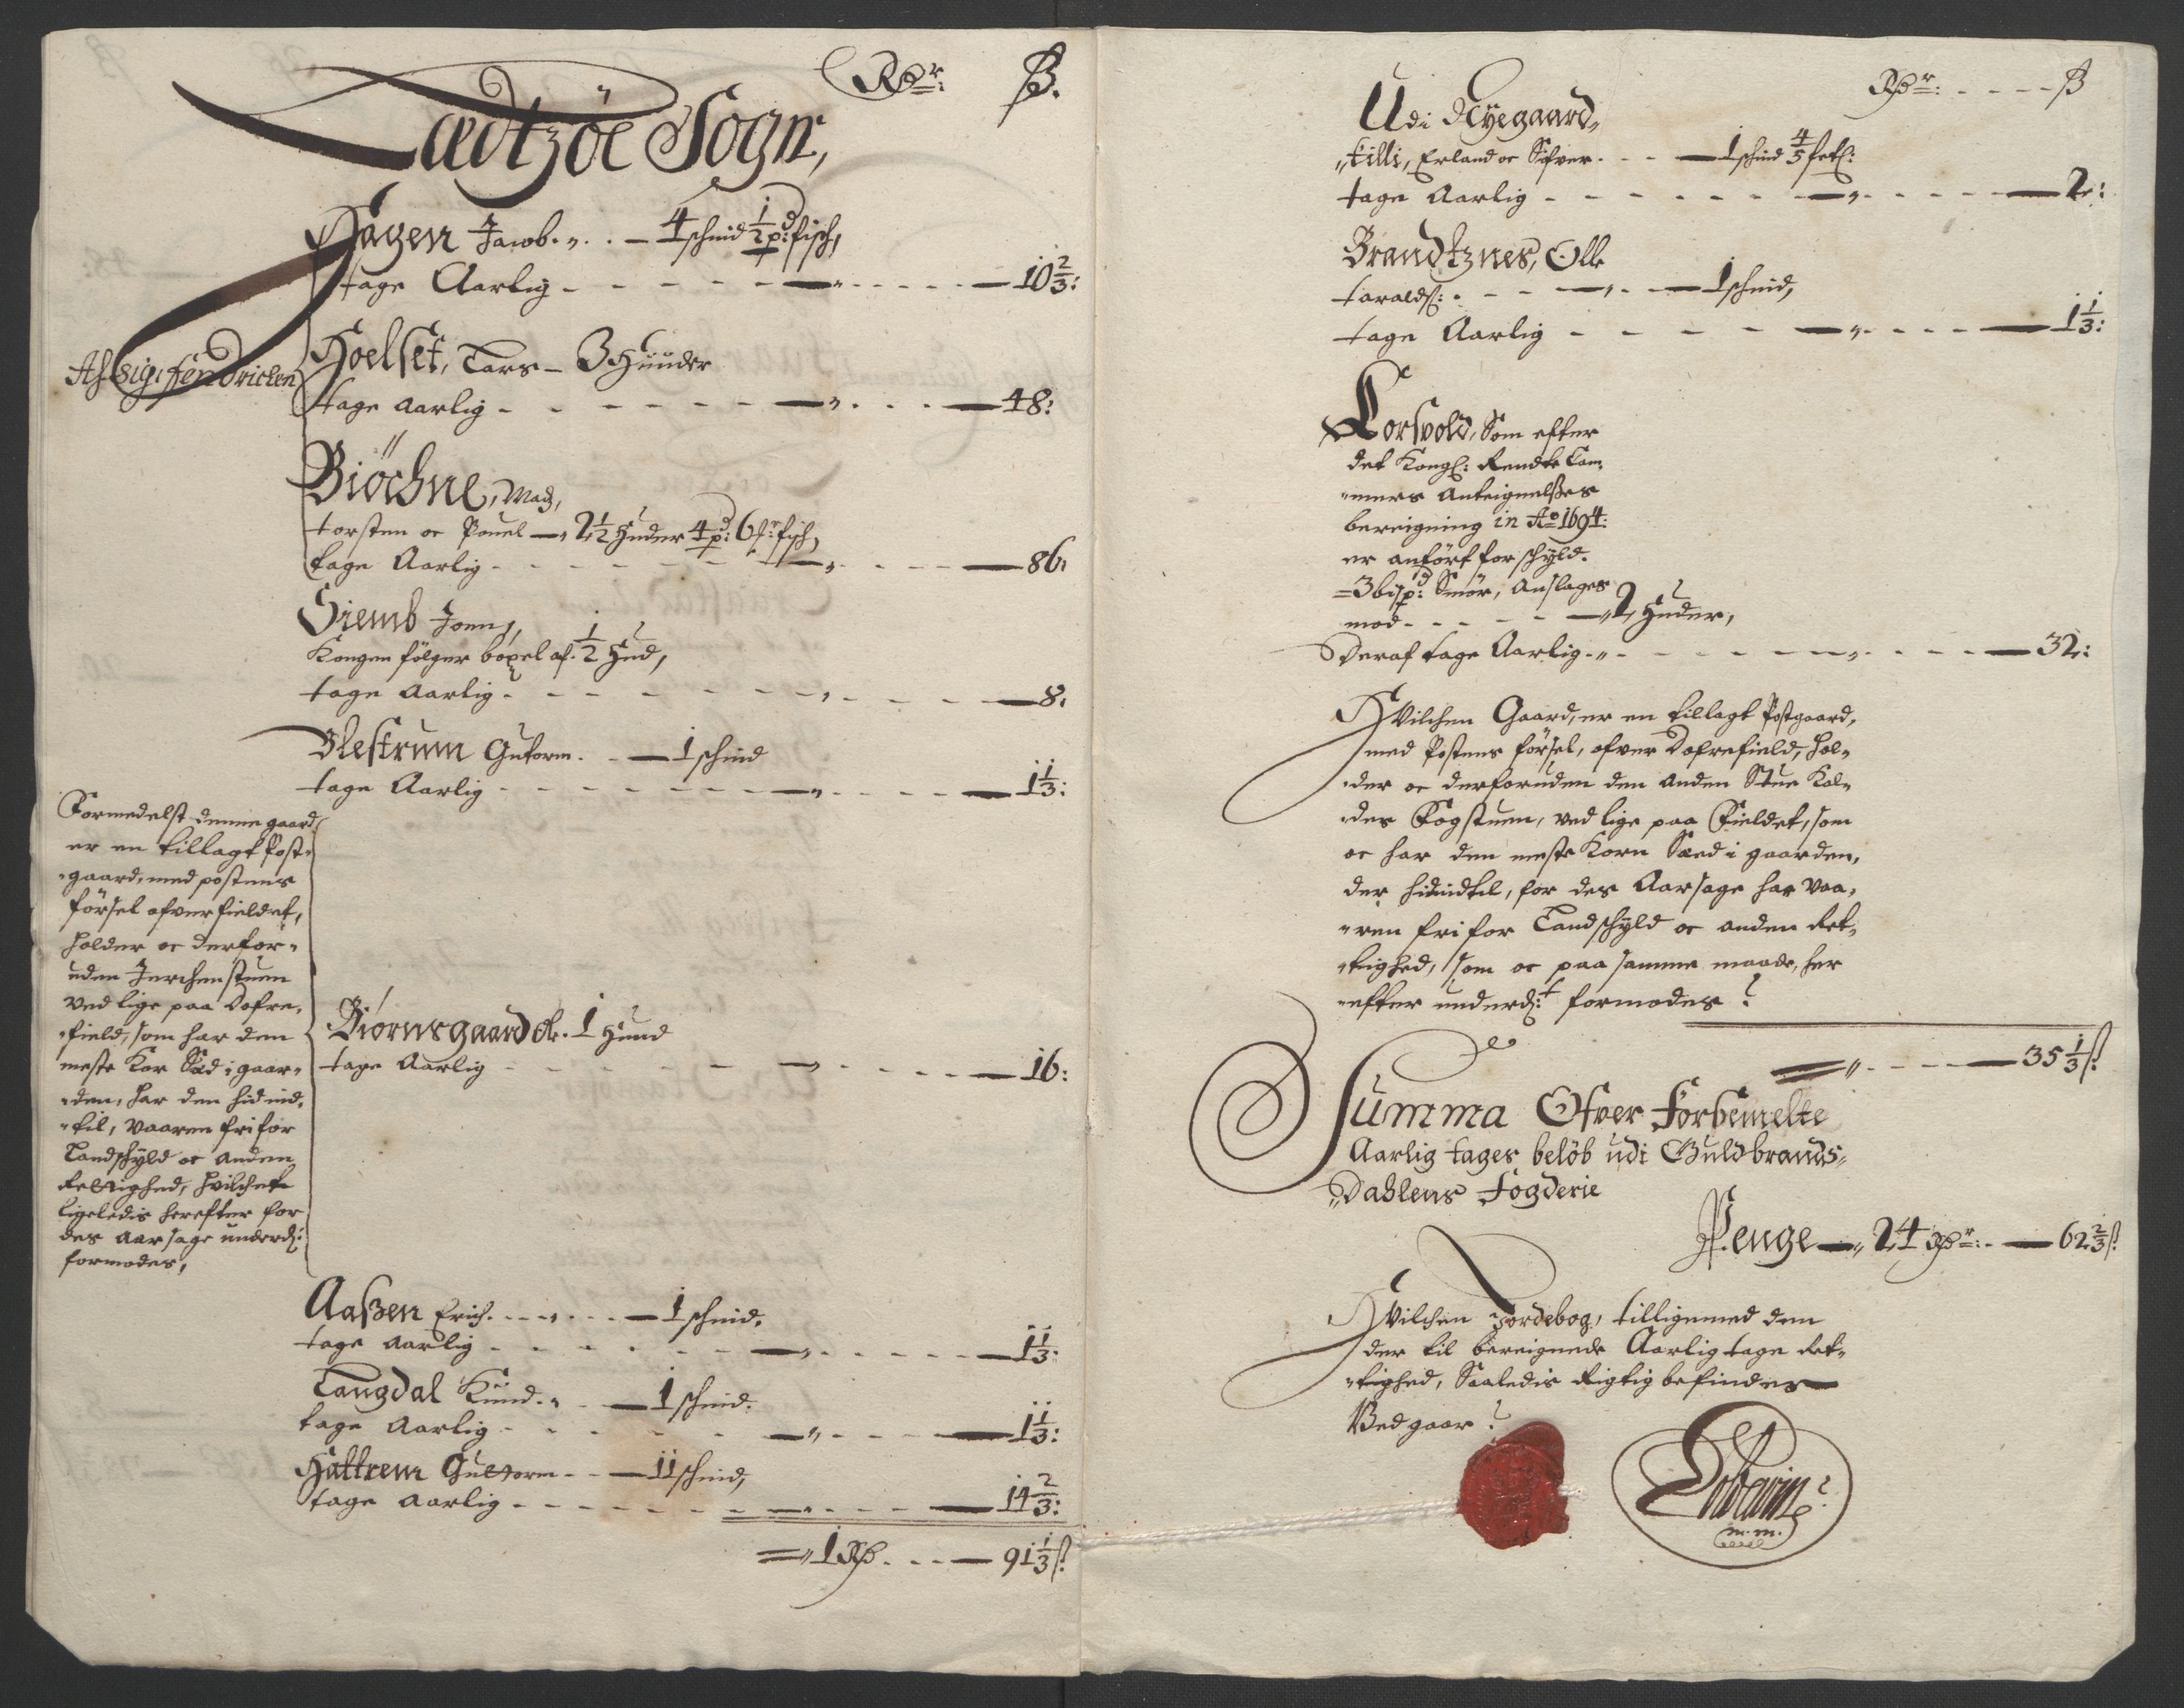 Rdr: ß.
Lædtzöe Sogn,
Hagen Jacob. „ . . — 4 schind ½ pd: fisch,
tage Aarlig - - - - - — „ - - - — 10 2/3:
Hoelset, Lars — 3 Huuder
tage Aarlig - - - - - - — „ - - - — 48:
Biöchne, Mads,
torsten oc Pouel — „ 2½ Huder 4 pd: 6 fisch,
tage Aarlig - - - - - - — „ - - - — 86:
Siemb Joen,
Kongen fölger böxel af. ½ Hud,
tage Aarlig - - - - - - - „ - - - — 8:
Blestrum Gutorm. - — 1 schind
tage Aarlig - - - - - - — „ - - - — 1 1/3:
Formedelst denne gaard
er en tillagt Post-
gaard, med postens
försel ofver fieldet,
holder oc derfor-
uden Jerchenstuen
ved lige paa Dofre-
field, som har den
meste Kor Sæd i gaar-
den, har den hid ind-
til, vaaren fri for
Landschyld oc anden
Rettighed, hvilchet
ligeledis herefter for
des aarsage underd:
formodes,
Biörnsgaard Ol. 1 Huud
tage Aarlig - - - - - — „ - - - — 16:
Aaßen Erich. - - „ - - — 1 schind.
tage Aarlig - - - - - - — „ - - - — 1 1/3:
Langdal Knud. „ - — 1 schind.
tage Aarlig - - - - - — „ - - - — 1 1/3:
Hattrem Guttorm - - — 11 schind,
tage Aarlig - - - - - - — „ - - - — 14 2/3:
= „ 1 Rd - - - — 91 1/3 ß
Rdr: - - - - ß
Udi Nyegaard,
„tilli, Erland oc Sifver. - - — 1 schind 4/5
tage Aarlig - - - - - - — „ - - - — 2:
Brandtznes, Olle
taralds: - - - — „ - — 1 schind,
tage Aarlig - - - - - — „ - - - — 1 1/3:
Torsvold, Som efter
det Kongl: Rendte Cam-
„mers Anteignelßes
bereigning in Ao 1694:
er anfört for schyld.
= 3 bispd: Smör, Anslages
mod - - - - - — „ 2 Huder,
Deraf tage Aarlig. „ - - - - - - „ - - - — 32:
Hvilchen Gaard, er en tillagt Postgaard,
med Postens försel, ofver Dofrefield, hol-
„der oc derforuden den anden Stue Kal-
„des Fogstuen, ved lige paa Fieldet, som
oc har den meste Korn Sæed i gaarden,
der hidindtil, for des Aarsage har vaa-
„ren fri for Landschyld oc anden Ret-
„tighed, som oc paa samme maade, her
„efter underd:t formodes
= „ - - - — 35 1/3 ß
Summa Ofver Forbemelte
Aarlig tages belöb udi Guldbrands-
„Dahlens Fogderie
Penge — „ 24 Rdr: - — 62 2/3 ß
Hvilchen Jordebog, tilligemed den
der til bereignede Aarlig tage Ret-
„tighed, Saaledis Rigtig befindes
Vedgaar
m. m.